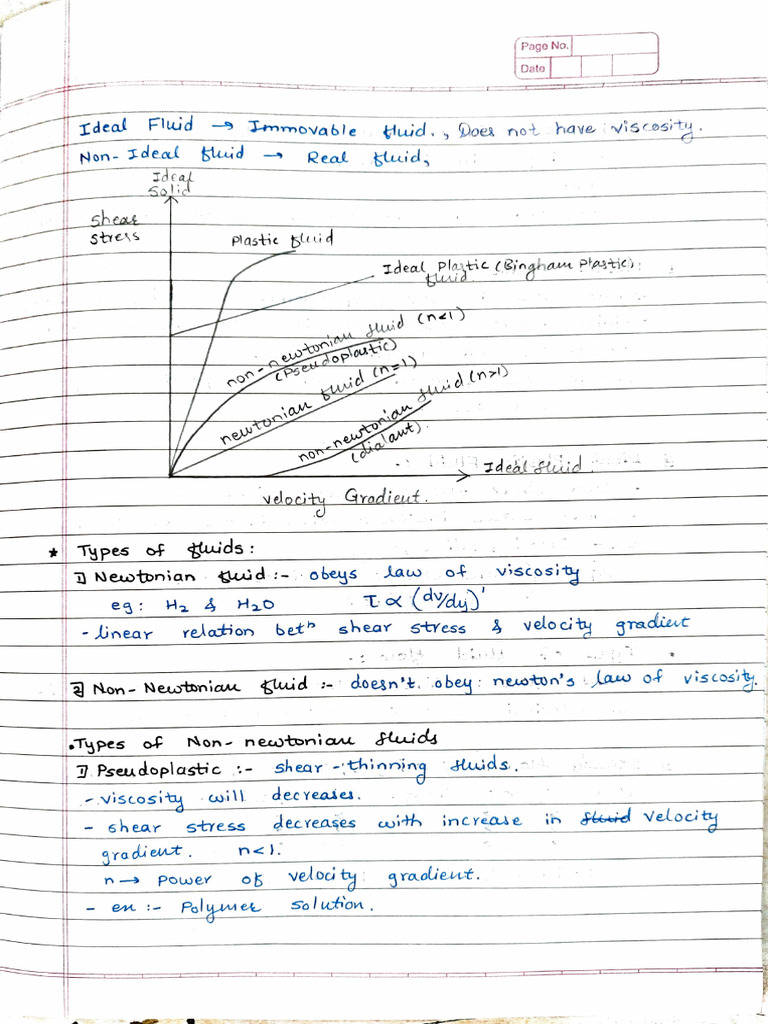 Page No.
Date
Ideal Fluid → Immovable fluid., Does not have viscosity.
Non-Ideal fluid → Real fluid,
Ideal
Solid
Shear
stress
Plastic fluid
Ideal Plastic (Bingham Plastic)
fluid
non-newtonian fluid (n<1)
(Pseudoplastic)
newtonian fluid (n=1)
non-newtonian fluid (n>1)
(dialant)
Ideal fluid
velocity Gradient.
* Types of fluids:
1) Newtonian fluid :- obeys law of viscosity
eg: H2 & H2O τ ∝ (dv/dy)¹
- linear relation betⁿ shear stress & velocity gradient
2) Non-Newtonian fluid :- doesn't obey newton's law of viscosity.
• Types of Non-newtonian fluids
1) Pseudoplastic :- shear-thinning fluids.
- viscosity will decreases.
- shear stress decreases with increase in fluid velocity
gradient. n<1.
n → power of velocity gradient.
- en :- Polymer solution.